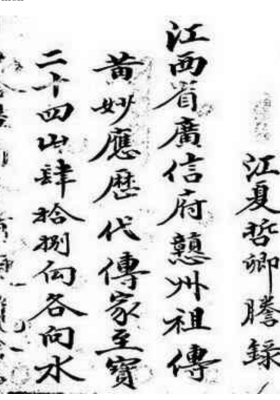 江夏哲卿謄録
江西省廣信府䕫州祖傳
黄妙應歷代傳家至寳
二十四山肆拾捌向各向水